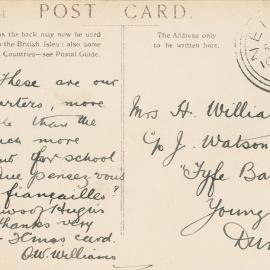 POST CARD.
is the back may now be used
the British Isles; also some
Countries—see Postal Guide.
The Address only
to be written here.
These are our
arters, more
le than the
ch more
nt for school
Que pensez vous
fiançailles?
thanks very
Xmas card.
O.W. Williams
Mrs H. William
C/o J. Watson
"Fyfe Ba
Young
Dun